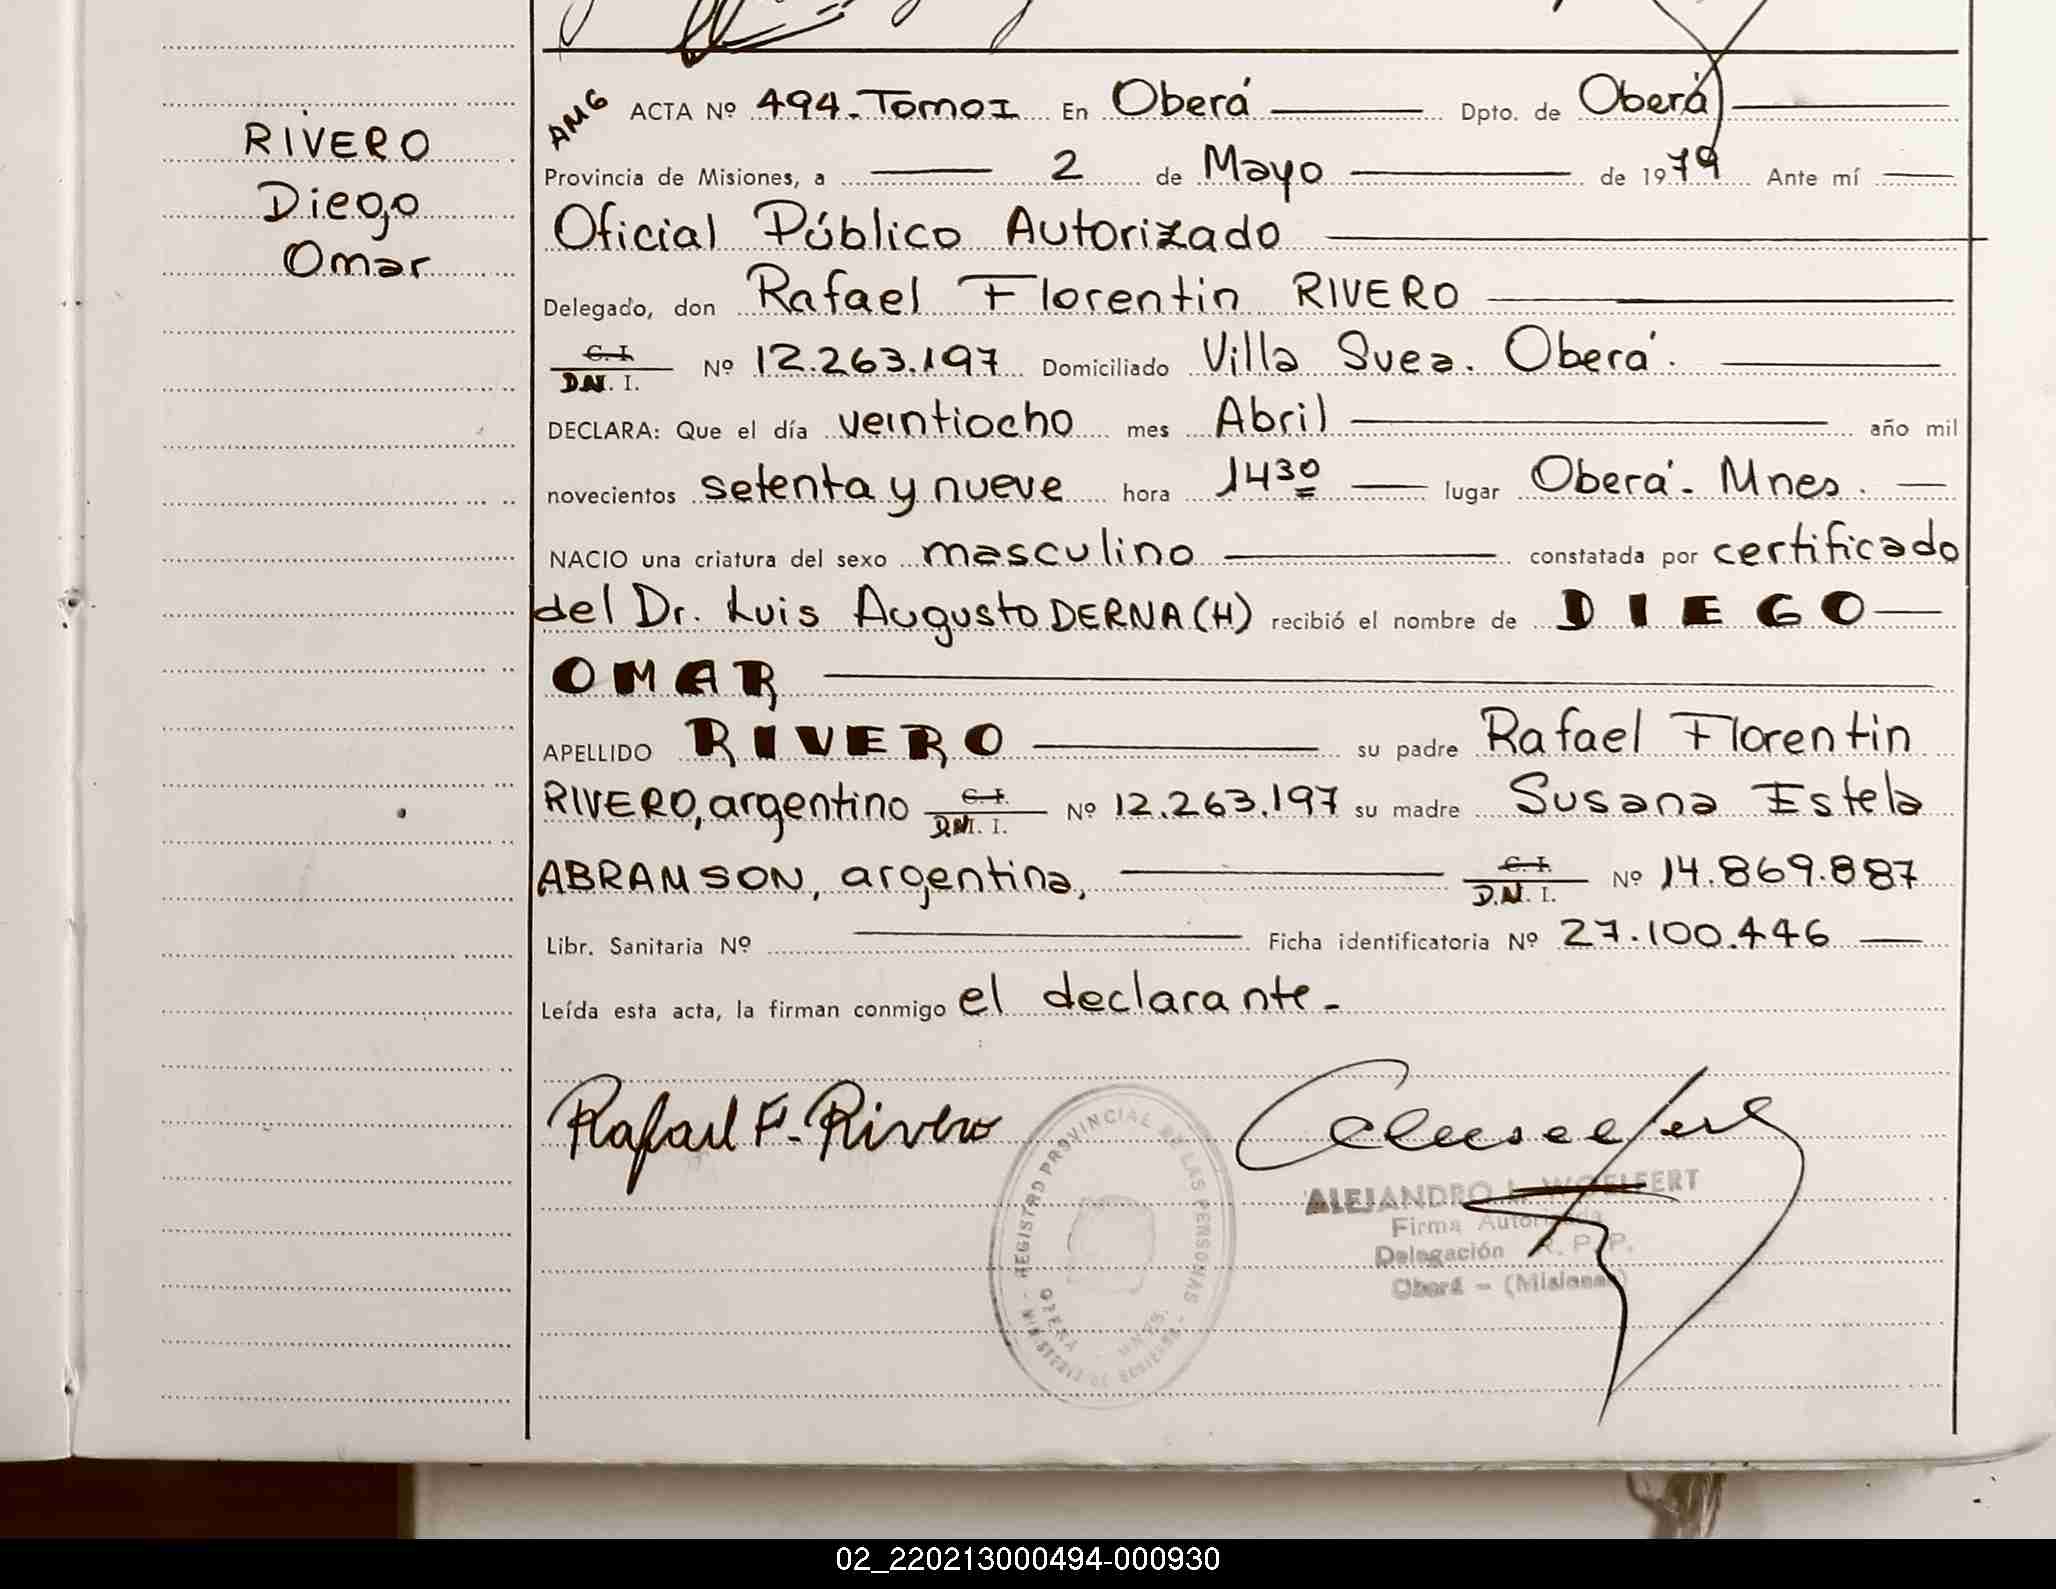 RIVERO
Diego
Omar
AMG
ACTA Nº 494. Tomo I En Oberá Dpto. de Oberá
Provincia de Misiones, a 2 de Mayo de 1979 Ante mí
Oficial Público Autorizado
Delegado, don Rafael Florentin RIVERO
C. I.
D.N. I. Nº 12.263.197 Domiciliado Villa Svea. Oberá.
DECLARA: Que el día veintiocho mes Abril año mil
novecientos setenta y nueve hora 14 30 lugar Oberá. Mnes.
NACIO una criatura del sexo masculino constatada por certificado
del Dr. Luis Augusto DERNA (H) recibió el nombre de DIEGO
OMAR
APELLIDO RIVERO su padre Rafael Florentin
RIVERO, argentino C. I. D.N. I. Nº 12.263.197 su madre Susana Estela
ABRAMSON, argentina, C. I. D.N. I. Nº 14.869.887
Libr. Sanitaria Nº Ficha identificatoria Nº 27.100.446
Leída esta acta, la firman conmigo el declarante.
Rafael F. Rivero
REGISTRO PROVINCIAL DE LAS PERSONAS
MINISTERIO DE GOBIERNO
MNES.
ALEJANDRO L. WOELFERT
Firma Autorizada
Delegación R. P. P.
Oberá - (Misiones)
02_220213000494-000930